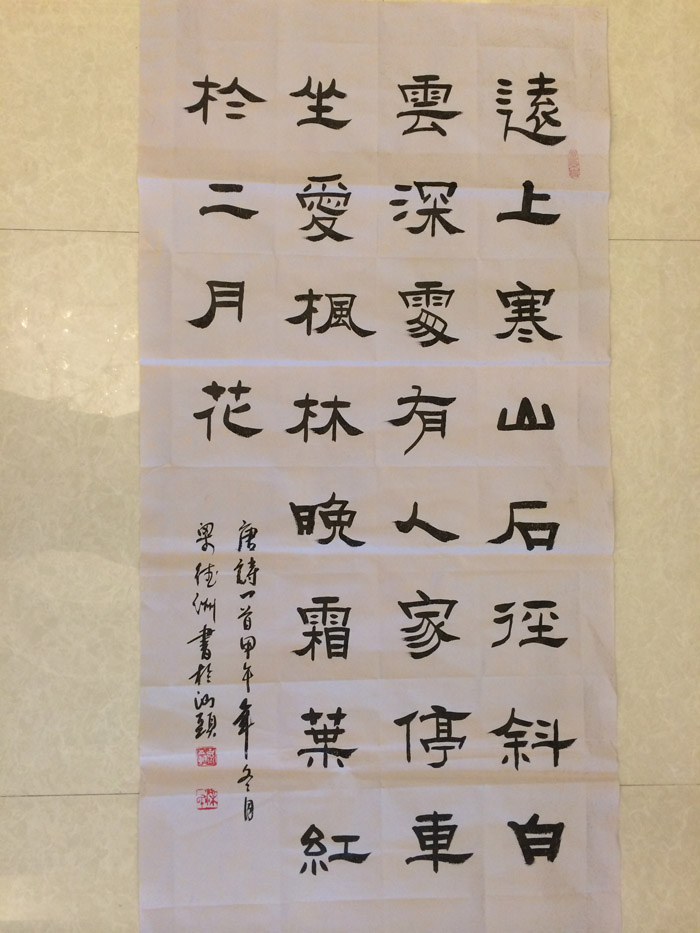 遠上寒山石徑斜白
雲深處有人家停車
坐愛楓林晚霜葉紅
於二月花
唐詩一首甲午年冬月
梁德洲書於汕頭